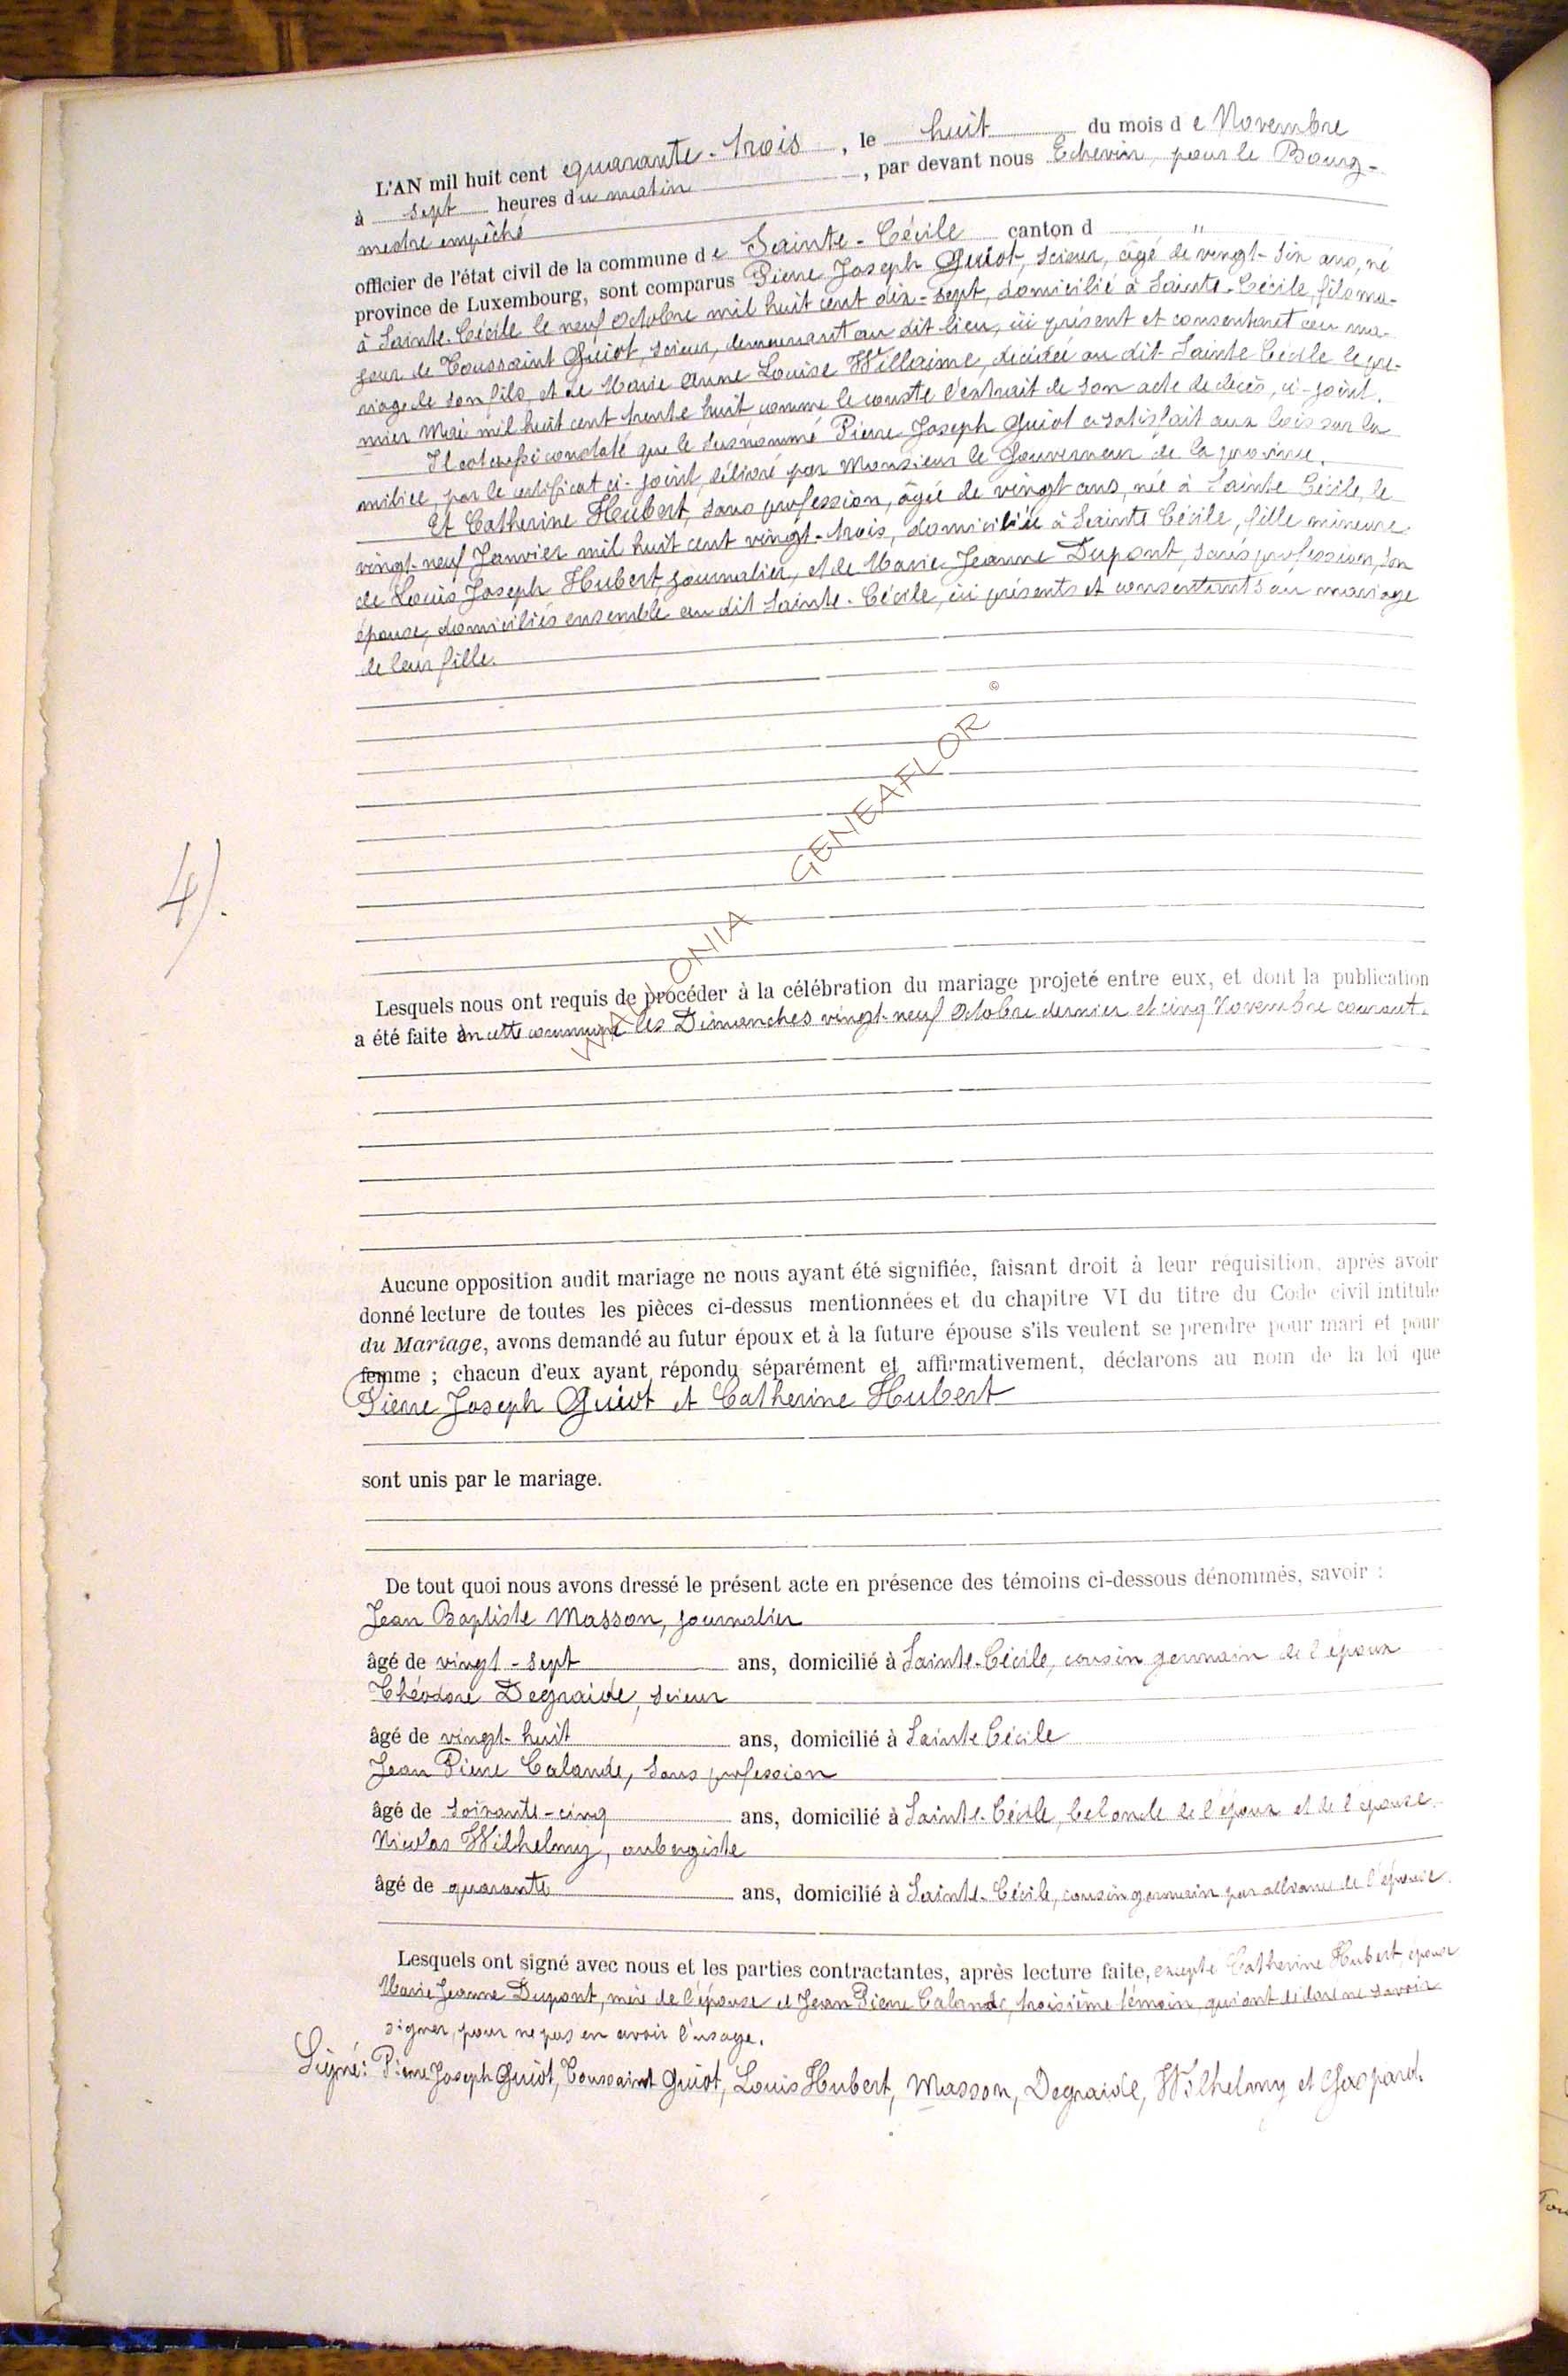 L'AN mil huit cent quarante-trois, le huit du mois d e Novembre
à sept heures du matin, par devant nous Echevin, pour le Bourg-
mestre empêché
officier de l'état civil de la commune d e Sainte-Cécile canton d "
province de Luxembourg, sont comparus Pierre Joseph Guiot, scieur, âgé de vingt-six ans, né
à Sainte-Cécile le neuf Octobre mil huit cent dix-sept, domicilié à Sainte-Cécile, fils ma-
jeur de Toussaint Guiot, scieur, demeurant au dit lieu, ici présent et consentant au ma-
riage de son fils, et de Marie Anne Louise Willaime, décédée au dit Sainte Cécile le pre-
mier Mai mil huit cent trente huit comme le conste l'extrait de son acte de décès, ci-joint.
Il est aussi constaté que le susnommé Pierre Joseph Guiot a satisfait aux lois sur la
milice, par le certificat ci-joint, délivré par Monsieur le Gouverneur de la province.
Et Catherine Hubert, sans profession, âgée de vingt ans, née à Sainte Cécile, le
vingt-neuf Janvier mil huit cent vingt-trois, domiciliée à Sainte Cécile, fille mineure
de Louis Joseph Hubert, journalier, et de Marie Jeanne Dupont, sans profession, son
épouse, domiciliés ensemble au dit Sainte-Cécile, ici présents et consentants au mariage
de leur fille.
WALLONIA GENEAFLOR ©
4).
Lesquels nous ont requis de procéder à la célébration du mariage projeté entre eux, et dont la publication
a été faite en cette commune les Dimanches vingt-neuf Octobre dernier et cinq Novembre courant.
Aucune opposition audit mariage ne nous ayant été signifiée, faisant droit à leur réquisition, après avoir
donné lecture de toutes les pièces ci-dessus mentionnées et du chapitre VI du titre du Code civil intitulé
du Mariage, avons demandé au futur époux et à la future épouse s'ils veulent se prendre pour mari et pour
femme ; chacun d'eux ayant répondu séparément et affirmativement, déclarons au nom de la loi que
Pierre Joseph Guiot et Catherine Hubert
sont unis par le mariage.
De tout quoi nous avons dressé le présent acte en présence des témoins ci-dessous dénommés, savoir :
Jean Baptiste Masson, journalier
âgé de vingt-sept ans, domicilié à Sainte-Cécile, cousin germain de l'époux
Théodore Degraide, scieur
âgé de vingt-huit ans, domicilié à Sainte Cécile
Jean Pierre Calande, sans profession
âgé de soixante-cinq ans, domicilié à Sainte-Cécile, bel oncle de l'époux et de l'épouse.
Nicolas Wilhelmy, aubergiste
âgé de quarante ans, domicilié à Sainte-Cécile, cousin germain par alliance de l'épouse.
Lesquels ont signé avec nous et les parties contractantes, après lecture faite, excepté Catherine Hubert, épouse
Marie Jeanne Dupont, mère de l'épouse et Jean Pierre Calande, troisième témoin qui ont déclaré ne savoir
signer, pour ne pas en avoir l'usage.
Signé: Pierre Joseph Guiot, Toussaint Guiot, Louis Hubert, Masson, Degraide, Wilhelmy et Gaspard.